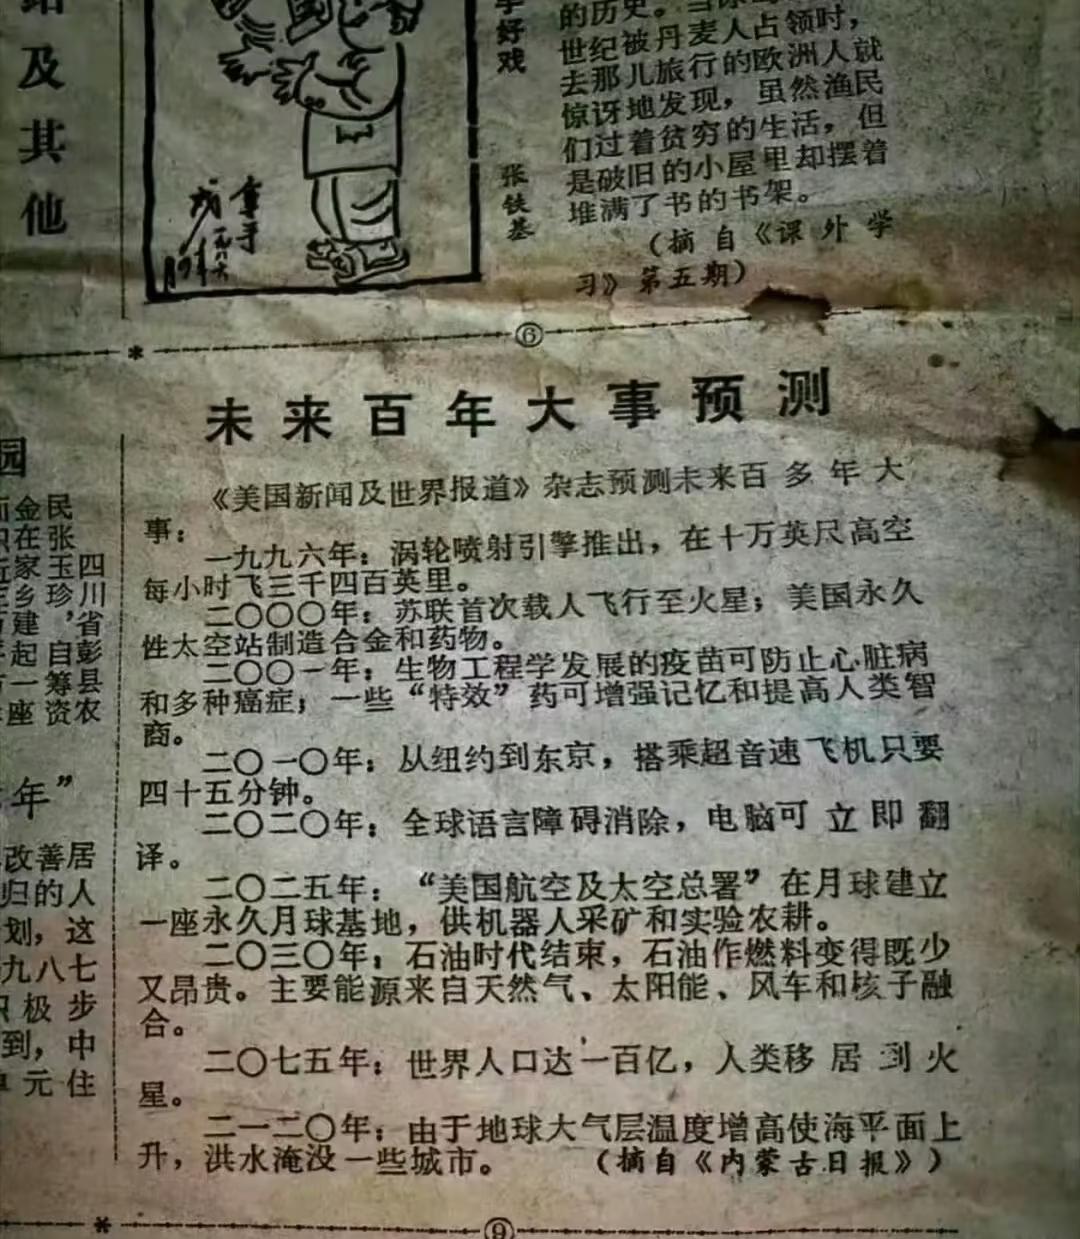 及其他
好戏
张铁基
的历史。
世纪被丹麦人占领时，
去那儿旅行的欧洲人就
惊讶地发现，虽然渔民
们过着贫穷的生活，但
是破旧的小屋里却摆着
堆满了书的书架。
（摘自《课外学
习》第五期）
⑥
未来百年大事预测
《美国新闻及世界报道》杂志预测未来百多年大
事：
一九九六年：涡轮喷射引擎推出，在十万英尺高空
每小时飞三千四百英里。
二〇〇〇年：苏联首次载人飞行至火星；美国永久
性太空站制造合金和药物。
二〇〇一年：生物工程学发展的疫苗可防止心脏病
和多种癌症；一些“特效”药可增强记忆和提高人类智
商。
二〇一〇年：从纽约到东京，搭乘超音速飞机只要
四十五分钟。
二〇二〇年：全球语言障碍消除，电脑可立即翻
译。
二〇二五年：“美国航空及太空总署”在月球建立
一座永久月球基地，供机器人采矿和实验农耕。
二〇三〇年：石油时代结束，石油作燃料变得既少
又昂贵。主要能源来自天然气、太阳能、风车和核子融
合。
二〇七五年：世界人口达一百亿，人类移居到火
星。
二一二〇年：由于地球大气层温度增高使海平面上
升，洪水淹没一些城市。（摘自《内蒙古日报》）
⑨
园
四川省彭县农
民张玉珍，自筹资
金在家乡建起一座
年”
改善居
归的人
划，这
九八七
积极步
到，中
单元住